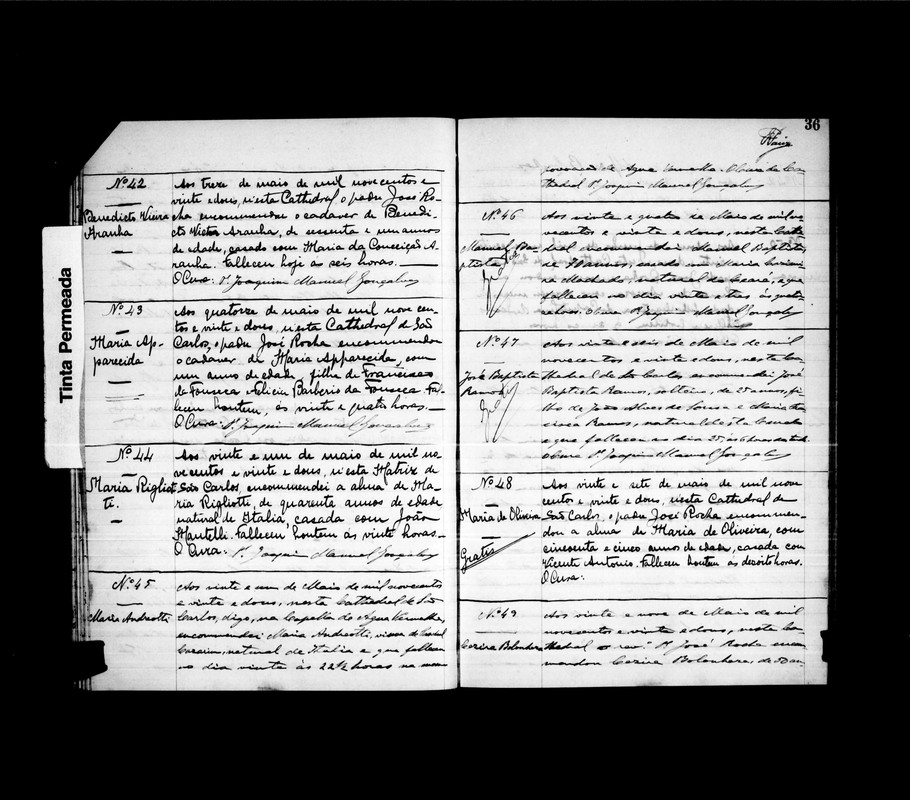 Tinta Permeada
Nº 42
Benedicto Vieira
Aranha
Aos treze de maio de mil novecentos e
vinte e dous, n'esta Cathedral, o padre José Ro-
cha encommendou o cadaver de Benedi-
cto Vieira Aranha, de sessenta e um annos
de edade, casado com Maria da Conceição A-
ranha. Falleceu hoje ás seis horas.—
O Cura: P. Joaquim Manuel Gonçalves
Nº 43
Maria Ap-
parecida
Aos quatorze de maio de mil nove cen-
tos e vinte e dous, n'esta Cathedral de São
Carlos, o padre José Rocha encommendou
o cadaver de Maria Apparecida, com
um anno de edade, filha de Francisco
da Fonseca e Felicia Barberio da Fonseca. Fal-
leceu hontem, ás vinte e quatro horas.—
O Cura: P. Joaquim Manuel Gonçalves
Nº 44
Maria Rigliot-
ti.
Aos vinte e um de maio de mil no-
vecentos e vinte e dous, n'esta Matriz de
São Carlos, encommendei a alma de Ma-
ria Rigliotti, de quarenta annos de edade
natural de Italia, casada com João
Mantelli. Falleceu hontem ás vinte horas.—
O Cura: P. Joaquim Manuel Gonçalves
Nº 45
Maria Andreotti
Aos vinte e um de Maio de mil novecentos
e vinte e dous, nesta Cathedral de São
Carlos, digo, na Capella de Agua Vermelha,
encommendei Maria Andreotti, viuva de
natural de Italia e que falleceu
no dia vinte ás 22½ horas na mesma
36
povoação de Agua Vermelha. O Cura da Ca-
thedral P. Joaquim Manuel Gonçalves
Nº 46
Manuel Ba-
ptista
Aos vinte e quatro de Maio de mil no-
vecentos e vinte e dous, nesta Cathe-
dral encommendei Manuel Baptista,
de annos, casado com Maria
Machado, natural do Ceará, e que
falleceu no dia vinte e tres ás quatro
horas. O Cura P. Joaquim Manuel Gonçalves
Nº 47
José Baptista
Ramos
Aos vinte e seis de Maio de mil
novecentos e vinte e dous, nesta Ca-
thedral de São Carlos encommendei José
Baptista Ramos, solteiro, de 25 annos, fi-
lho de João Alves de Souza e Maria
Ramos, natural desta
e que falleceu no dia 25, ás
O Cura P. Joaquim Manuel Gonçalves
Nº 48
Maria de Oliveira
Gratis
Aos vinte e sete de maio de mil nove
centos e vinte e dous, n'esta Cathedral de
São Carlos, o padre José Rocha encommen-
dou a alma de Maria de Oliveira, com
cincoenta e cinco annos de edade, casada com
Vicente Antonio. Falleceu hontem as dezoito horas.
O Cura:
Nº 49
Cezira Bolonhera
Aos vinte e nove de Maio de mil
novecentos e vinte e dous, nesta Ca-
thedral o rev. P. José Rocha encom-
mendou Cezira Bolonhera, de 50 an-